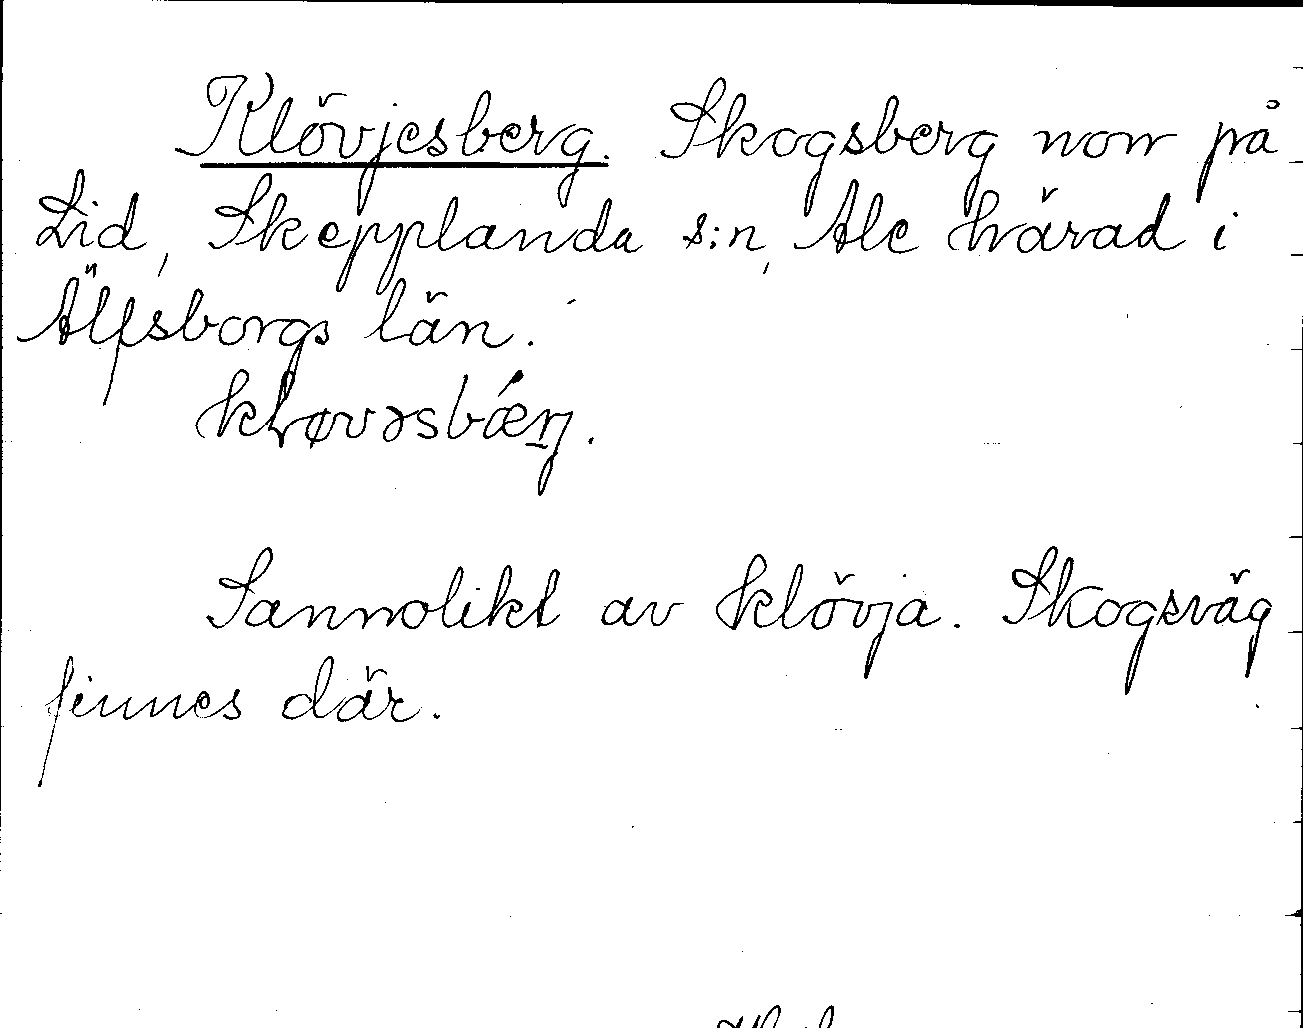 Klövjesberg. Skogsberg norr på
Lid, Skepplanda s:n, Ale härad i
Älfsborgs län.
kløvəsbǽrŋ.
Sannolikt av klövja. Skogsväg
finnes där.